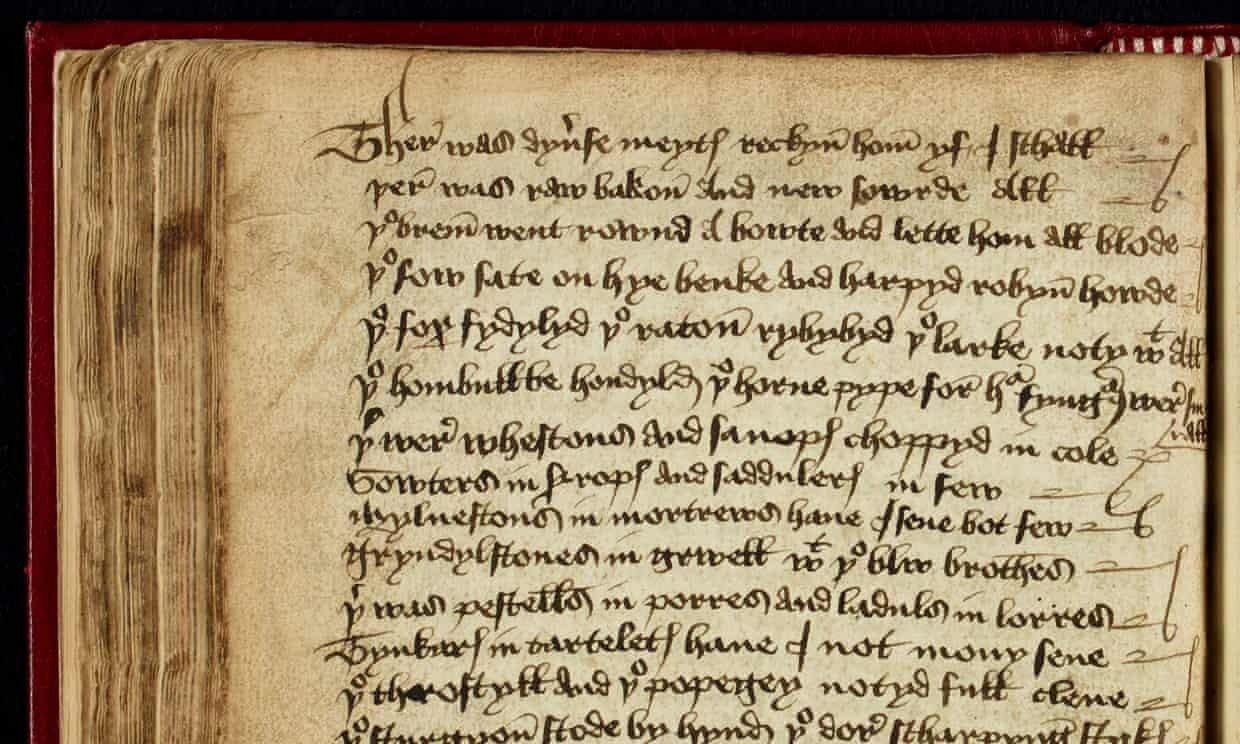 Ther was dyuse meyts reckyn hom yf I schall
þer was raw bakon and new sowrde all
þe brem went rownd a bowte and lette hom all blode
þe sow sate on hye benke and harpyd robyn howde
þe fox fydylyd þe raton rybybyd þe larke noty wt all
þe hombull be hondyld þe horne pype for hr fyngrs wer small
þr wer whestons and sanops choppyd in cole
Sowters in syrops and saddulers in sew
mylnestons in mortrews haue I sene bot few
gryndylstones in grwell wt þe blw brothes
þr was pestells in porres and laduls in lorres
Tynkars in tartelets haue I not mony sene
þe throstyll and þe popegey notyd full clene
þe sturgyon stode by hynd þe dor scharpyng styks